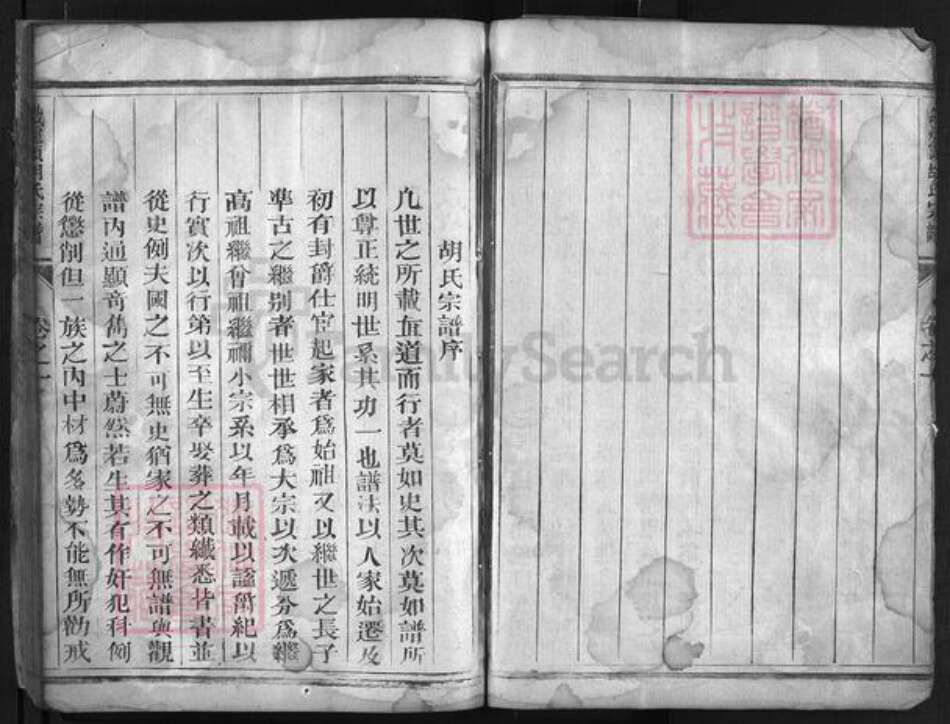 胡氏宗譜序
凡世之所載直道而行者莫如史其次莫如譜所
以尊正統明世系其功一也譜法以人家始遷及
初有封爵仕宦起家者爲始祖又以繼世之長子
準古之繼别者世世相承爲大宗以次遞分爲繼
高祖繼曾祖繼禰小宗系以年月載以諡爵紀以
行實次以行第以至生卒娶葬之類纖悉皆書並
從史例夫國之不可無史猶家之不可無譜與觀
譜内通顯奇雋之士蔚然若生其有作奸犯科例
從懲削但一族之内中材爲多勢不能無所勸戒
胡氏宗譜
卷之一
FamilySearch